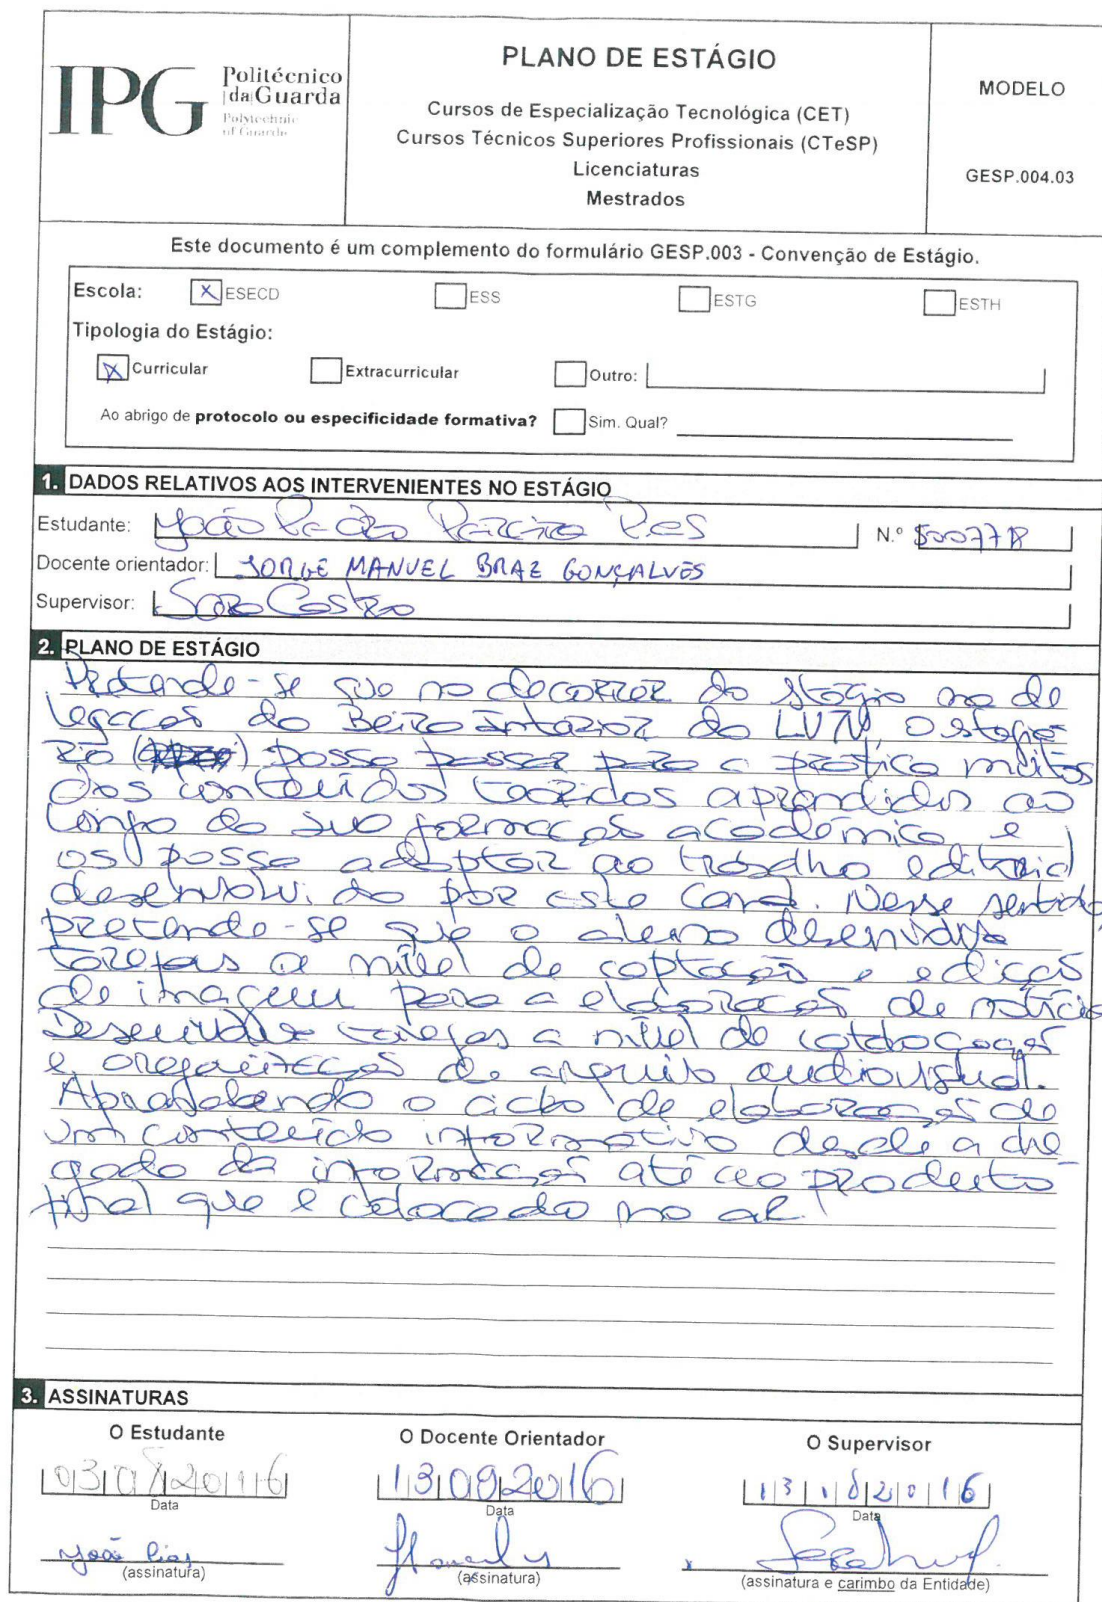 IPG
Politécnico
|da|Guarda
Polytechnic
of Guarda
PLANO DE ESTÁGIO
Cursos de Especialização Tecnológica (CET)
Cursos Técnicos Superiores Profissionais (CTeSP)
Licenciaturas
Mestrados
MODELO
GESP.004.03
Este documento é um complemento do formulário GESP.003 - Convenção de Estágio.
Escola: X ESECD ESS ESTG ESTH
Tipologia do Estágio:
X Curricular Extracurricular Outro:
Ao abrigo de protocolo ou especificidade formativa? Sim. Qual?
1. DADOS RELATIVOS AOS INTERVENIENTES NO ESTÁGIO
Estudante: João Pedro Pereira Pires N.º
Docente orientador: JORGE MANUEL BRAZ GONÇALVES
Supervisor: Sara Castro
2. PLANO DE ESTÁGIO
Pretende-se que no decorrer do stágio na de
legação da Beira Interior da O stagiá
rio possa passar para a prática muitos
dos conteúdos teóricos aprendidos ao
longo da sua formação académica e
os possa adaptar ao trabalho editorial
desenvolvido por este canal. Nesse sentido,
pretende-se que o aluno desenvolva
tarefas a nível de captação e edição
de imagem para a elaboração de notícias
Desenvolver tarefas a nível de catalogação
e organização de arquivo audiovisual.
o ciclo de elaboração de
um conteúdo informativo desde a che
gada da informação até ao produto
final que é colocado no ar.
3. ASSINATURAS
O Estudante O Docente Orientador O Supervisor
13092016
Data Data Data
João Pires
(assinatura) (assinatura) (assinatura e carimbo da Entidade)